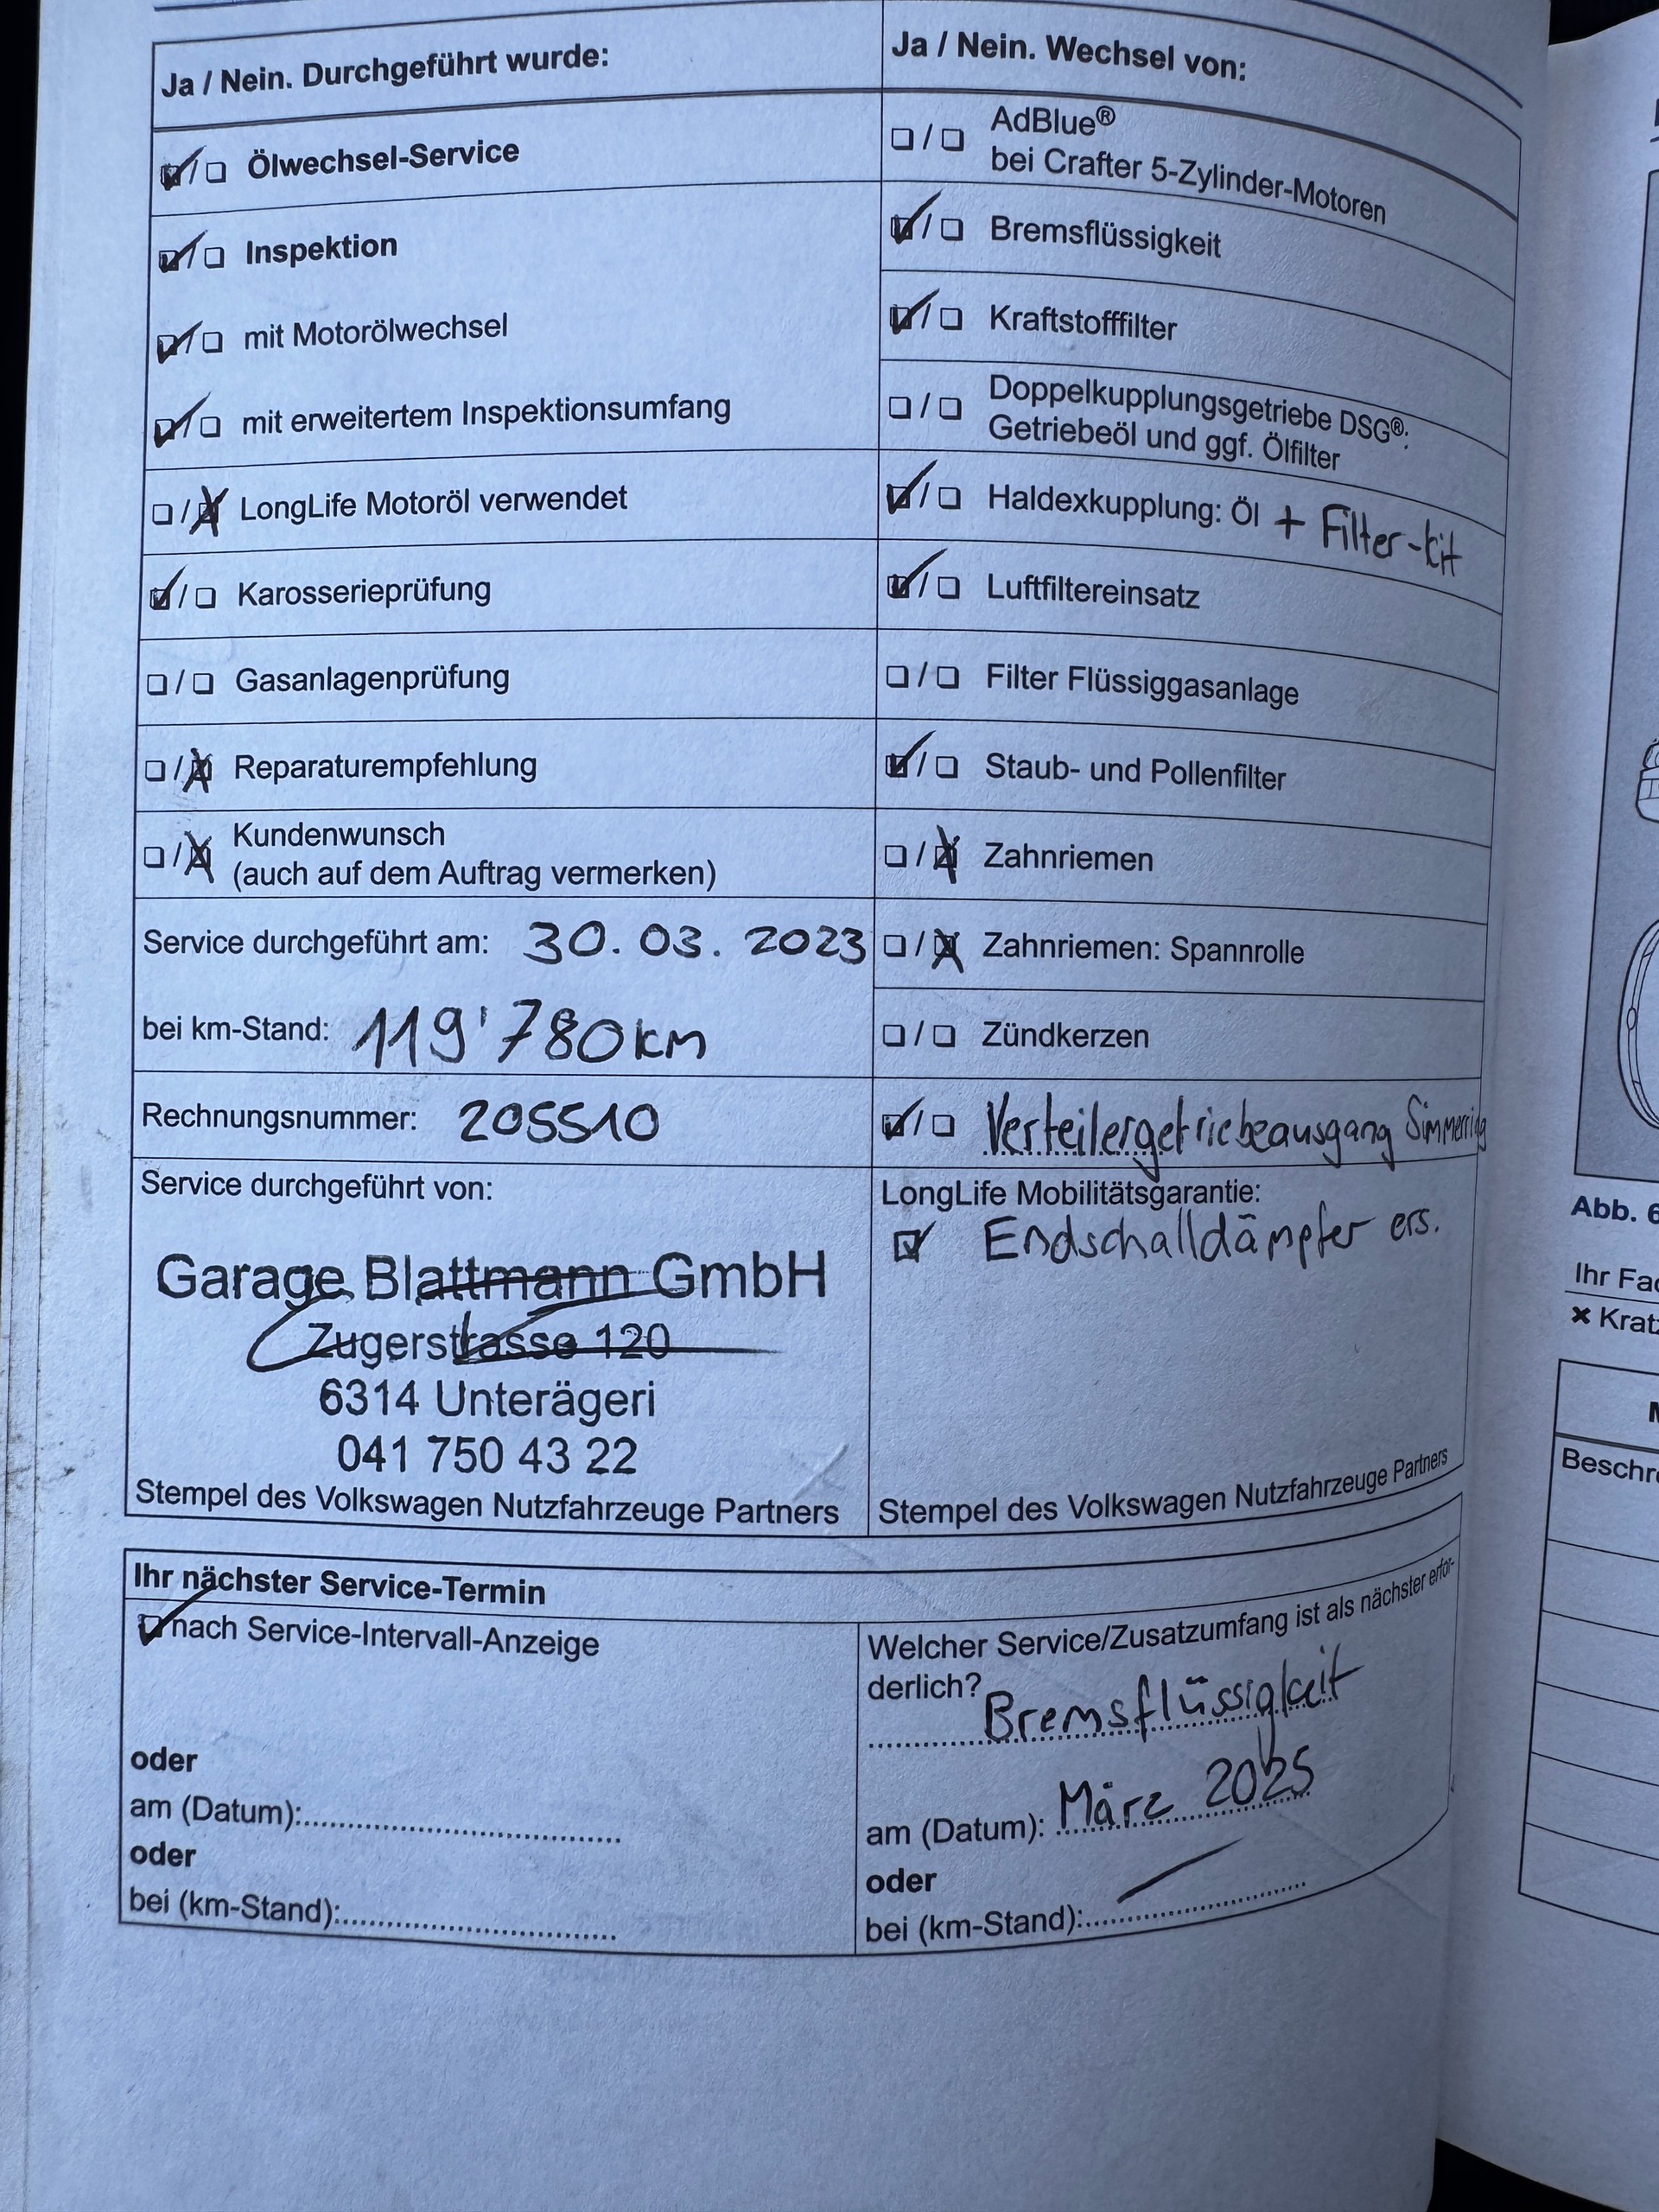 Ja / Nein. Durchgeführt wurde:
Ölwechsel-Service
Inspektion
mit Motorölwechsel
mit erweitertem Inspektionsumfang
LongLife Motoröl verwendet
Karosserieprüfung
Gasanlagenprüfung
Reparaturempfehlung
Kundenwunsch
(auch auf dem Auftrag vermerken)
Service durchgeführt am: 30. 03. 2023
bei km-Stand: 119'780km
Rechnungsnummer: 205510
Service durchgeführt von:
Garage Blattmann GmbH
Zugerstrasse 120
6314 Unterägeri
041 750 43 22
Stempel des Volkswagen Nutzfahrzeuge Partners
Ja / Nein. Wechsel von:
AdBlue®
bei Crafter 5-Zylinder-Motoren
Bremsflüssigkeit
Kraftstofffilter
Doppelkupplungsgetriebe DSG®:
Getriebeöl und ggf. Ölfilter
Haldexkupplung: Öl + Filter-kit
Luftfiltereinsatz
Filter Flüssiggasanlage
Staub- und Pollenfilter
Zahnriemen
Zahnriemen: Spannrolle
Zündkerzen
Verteilergetriebeausgang Simmerring
LongLife Mobilitätsgarantie:
Endschalldämpfer ers.
Stempel des Volkswagen Nutzfahrzeuge Partners
Ihr nächster Service-Termin
nach Service-Intervall-Anzeige
oder
am (Datum):
oder
bei (km-Stand):
Welcher Service/Zusatzumfang ist als nächster erfor-
derlich?
Bremsflüssigkeit
am (Datum): März 2025
oder
bei (km-Stand):
Abb. 6
Ihr Fa
Krat
Beschr